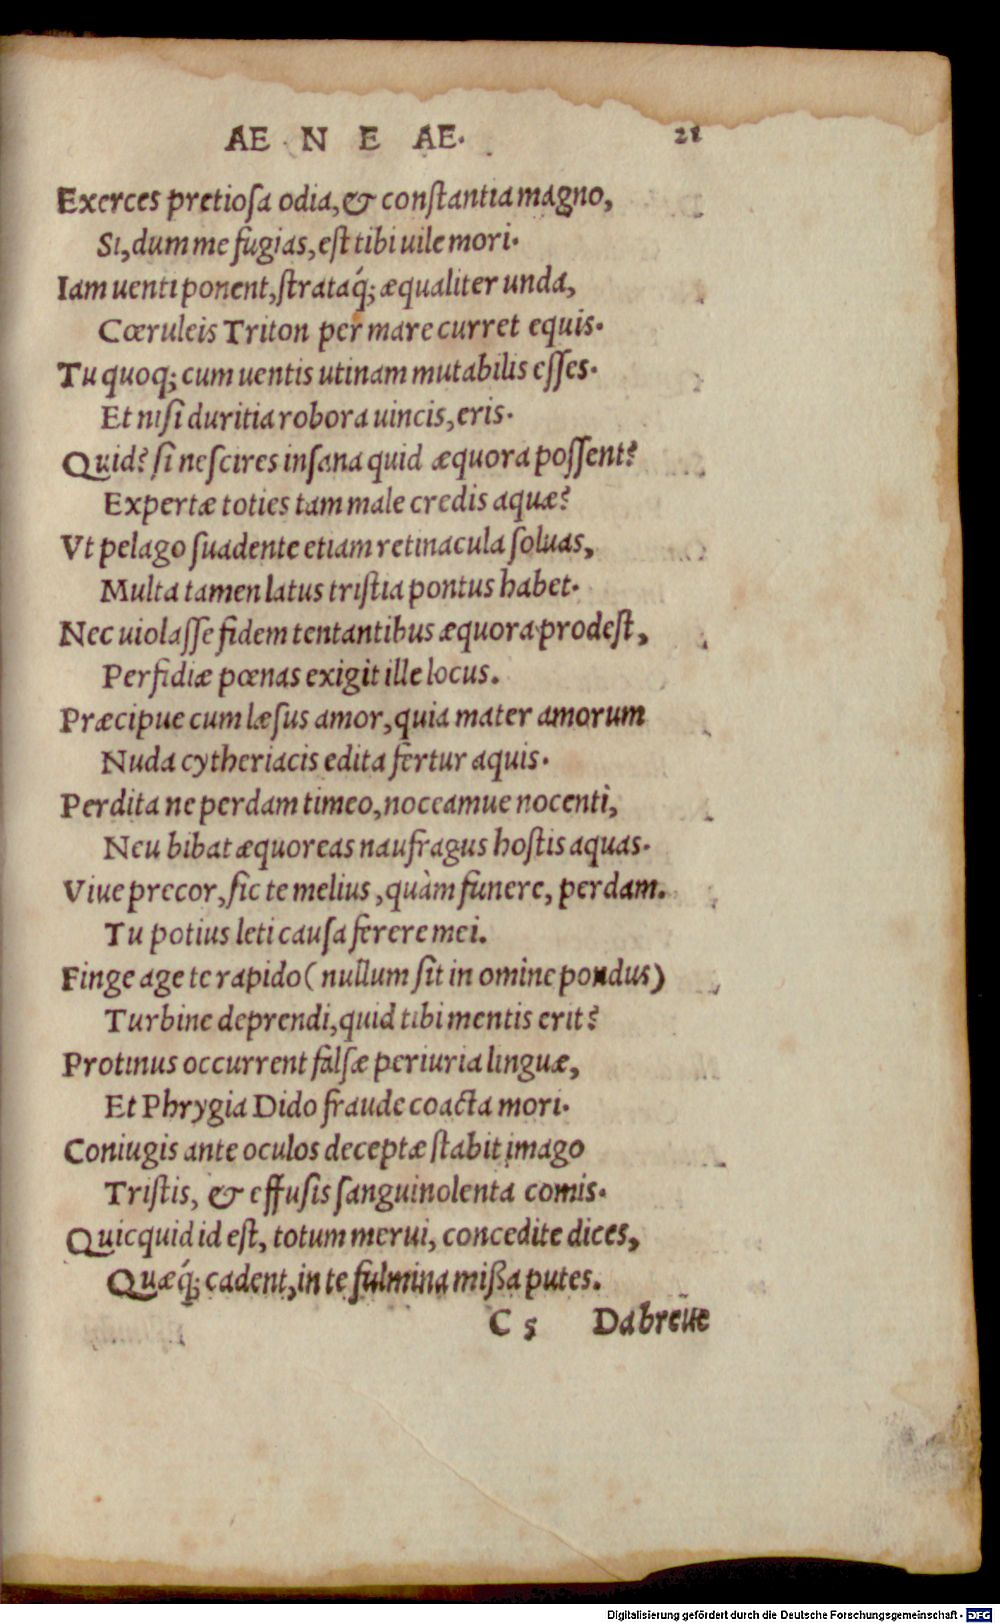 AE N E AE. 21
Exerces pretiosa odia, & constantia magno,
Si, dum me fugias, est tibi uile mori.
Iam uenti ponent, strataq́; æqualiter unda,
Cœruleis Triton per mare curret equis.
Tu quoq; cum uentis utinam mutabilis esses.
Et nisi duritia robora uincis, eris.
Quid? si nescires insana quid æquora possent?
Expertæ toties tam male credis aquæ?
Vt pelago suadente etiam retinacula soluas,
Multa tamen latus tristia pontus habet.
Nec uiolasse fidem tentantibus æquora prodest,
Perfidiæ pœnas exigit ille locus.
Præcipue cum læsus amor, quia mater amorum
Nuda cytheriacis edita fertur aquis.
Perdita ne perdam timeo, noceamue nocenti,
Neu bibat æquoreas naufragus hostis aquas.
Viue precor, sic te melius, quàm funere, perdam.
Tu potius leti causa ferere mei.
Finge age te rapido (nullum sit in omine pondus)
Turbine deprendi, quid tibi mentis erit?
Protinus occurrent falsæ periuria linguæ,
Et Phrygia Dido fraude coacta mori.
Coniugis ante oculos deceptæ stabit imago
Tristis, & effusis sanguinolenta comis.
Quicquid id est, totum merui, concedite dices,
Quæq́; cadent, in te fulmina missa putes.
C 5 Da breue
Digitalisierung gefördert durch die Deutsche Forschungsgemeinschaft - DFG